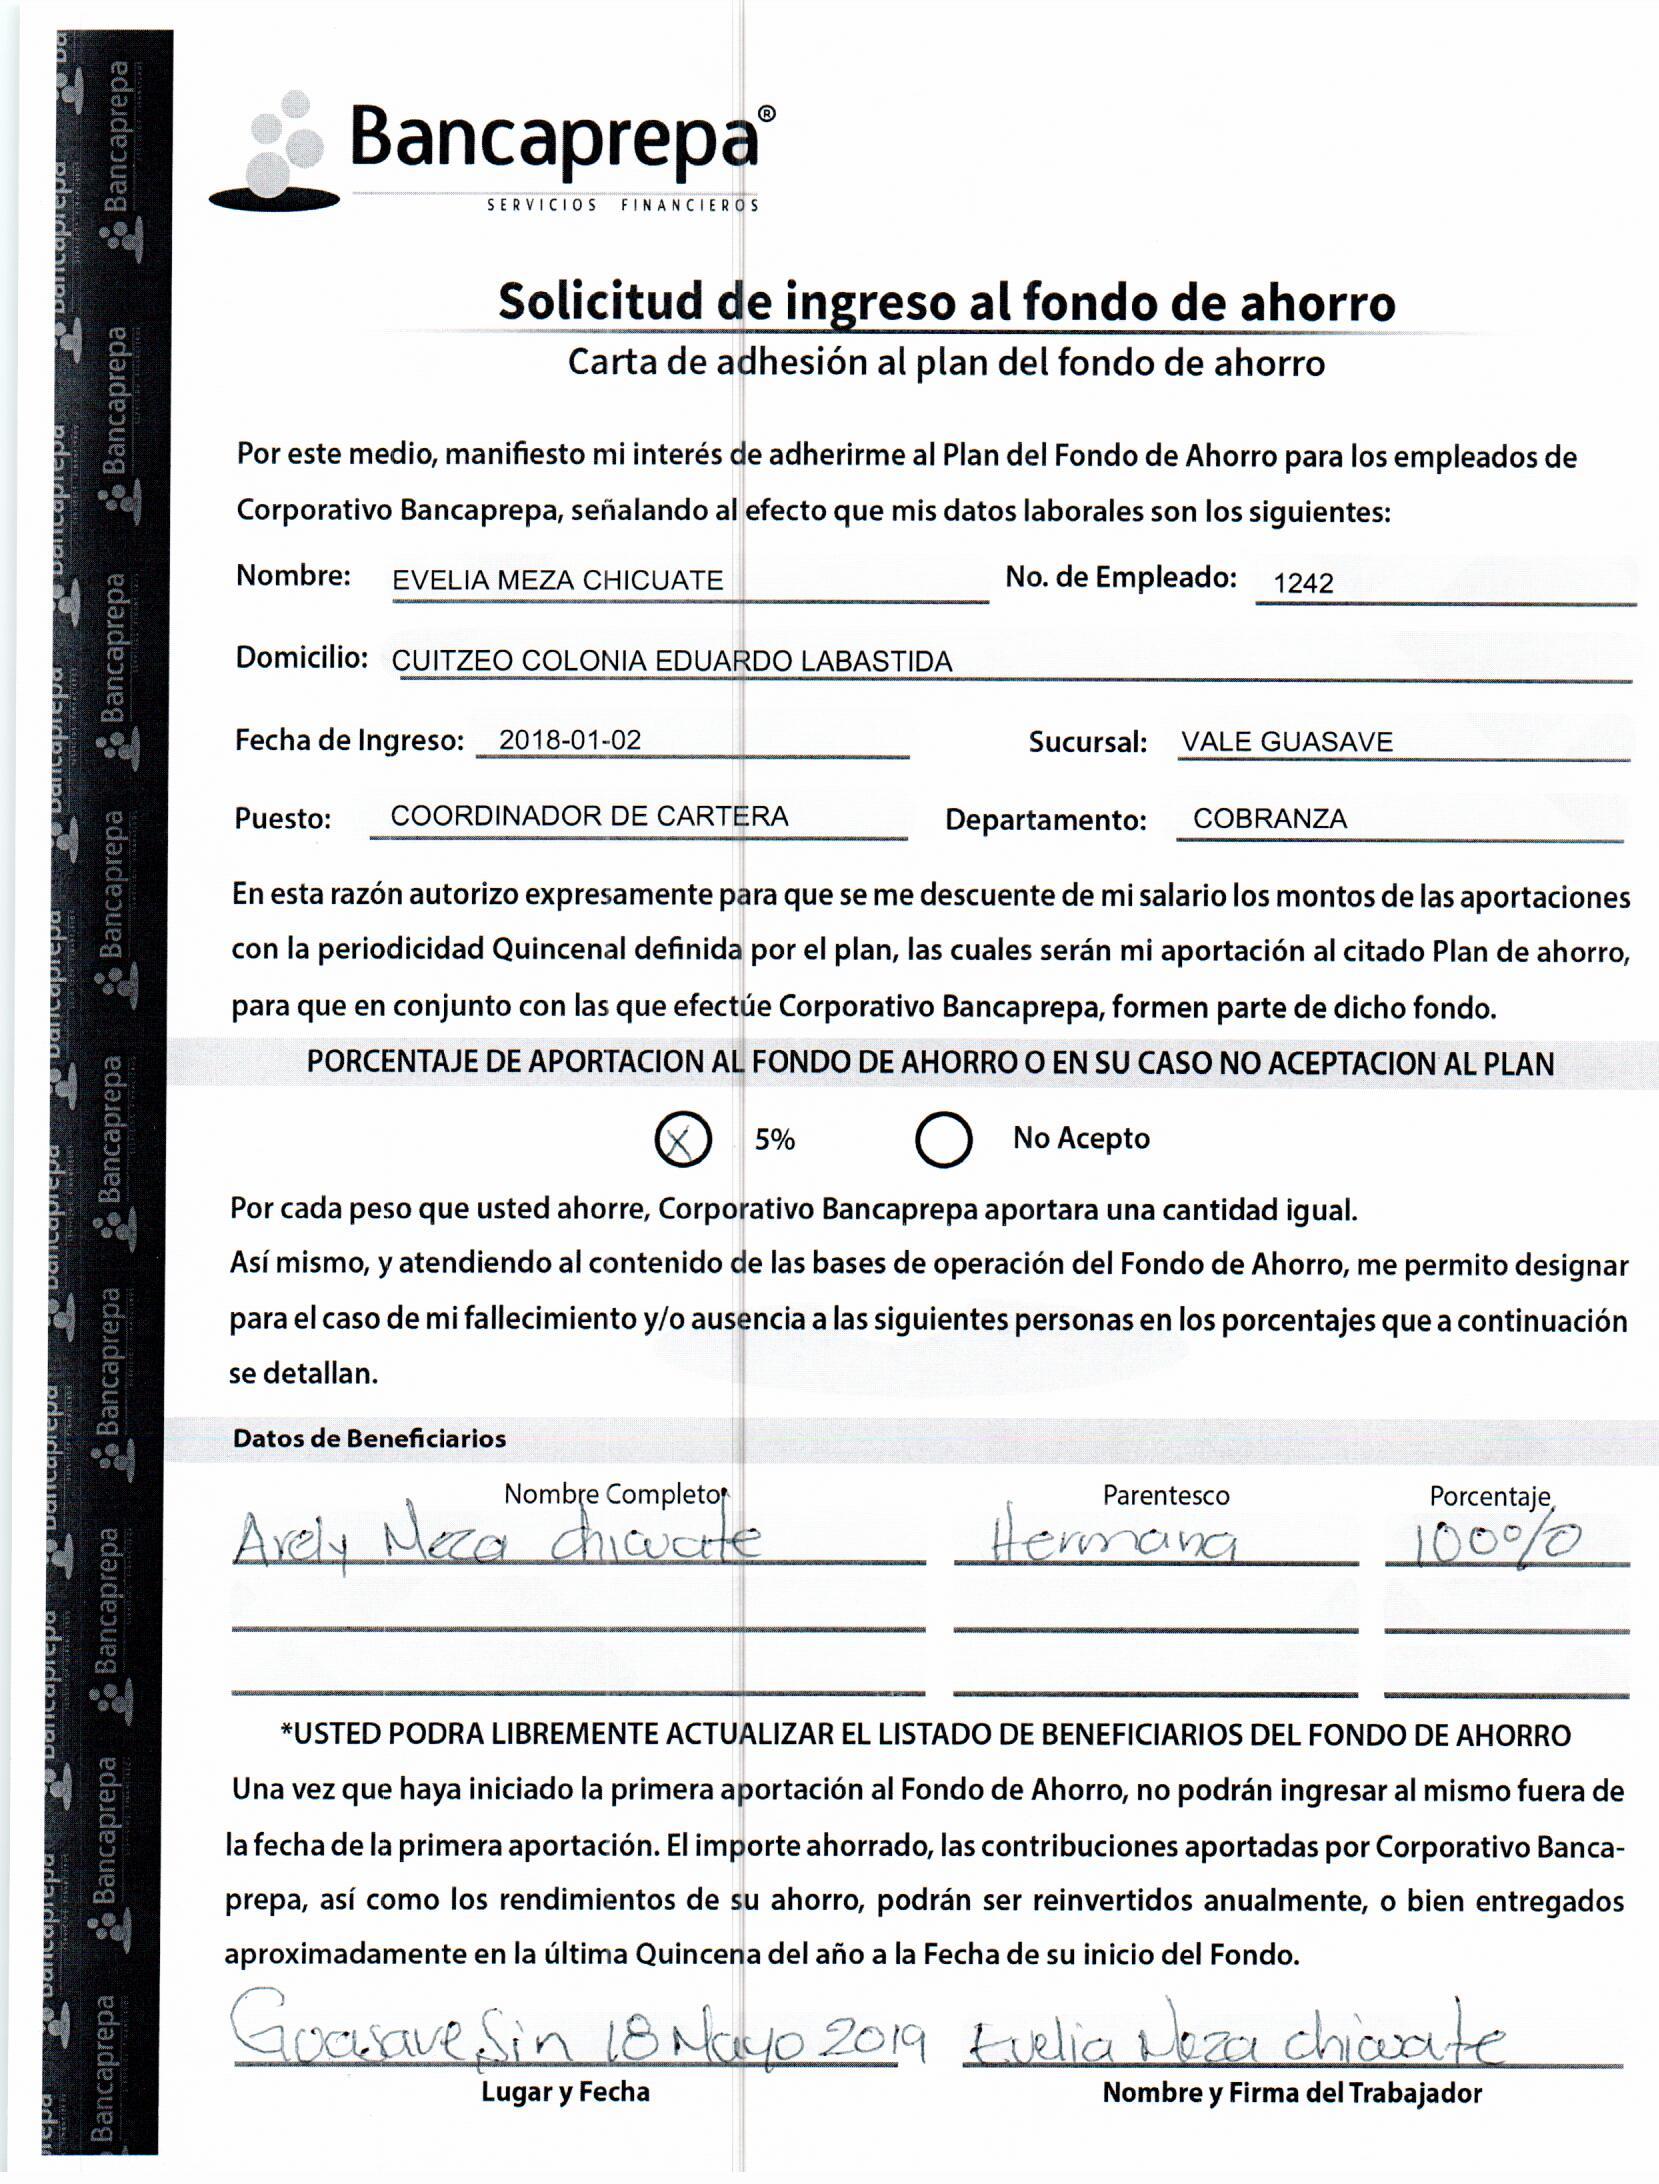 Bancaprepa®
SERVICIOS FINANCIEROS
Solicitud de ingreso al fondo de ahorro
Carta de adhesión al plan del fondo de ahorro
Por este medio, manifiesto mi interés de adherirme al Plan del Fondo de Ahorro para los empleados de
Corporativo Bancaprepa, señalando al efecto que mis datos laborales son los siguientes:
Nombre: EVELIA MEZA CHICUATE No. de Empleado: 1242
Domicilio: CUITZEO COLONIA EDUARDO LABASTIDA
Fecha de Ingreso: 2018-01-02 Sucursal: VALE GUASAVE
Puesto: COORDINADOR DE CARTERA Departamento: COBRANZA
En esta razón autorizo expresamente para que se me descuente de mi salario los montos de las aportaciones
con la periodicidad Quincenal definida por el plan, las cuales serán mi aportación al citado Plan de ahorro,
para que en conjunto con las que efectúe Corporativo Bancaprepa, formen parte de dicho fondo.
PORCENTAJE DE APORTACION AL FONDO DE AHORRO O EN SU CASO NO ACEPTACION AL PLAN
X 5% No Acepto
Por cada peso que usted ahorre, Corporativo Bancaprepa aportara una cantidad igual.
Así mismo, y atendiendo al contenido de las bases de operación del Fondo de Ahorro, me permito designar
para el caso de mi fallecimiento y/o ausencia a las siguientes personas en los porcentajes que a continuación
se detallan.
Datos de Beneficiarios
Nombre Completo Parentesco Porcentaje
Arely Meza chicuate Hermana 100%
*USTED PODRA LIBREMENTE ACTUALIZAR EL LISTADO DE BENEFICIARIOS DEL FONDO DE AHORRO
Una vez que haya iniciado la primera aportación al Fondo de Ahorro, no podrán ingresar al mismo fuera de
la fecha de la primera aportación. El importe ahorrado, las contribuciones aportadas por Corporativo Banca-
prepa, así como los rendimientos de su ahorro, podrán ser reinvertidos anualmente, o bien entregados
aproximadamente en la última Quincena del año a la Fecha de su inicio del Fondo.
Guasave, Sin 18 Mayo 2019 Evelia Meza chicuate
Lugar y Fecha Nombre y Firma del Trabajador